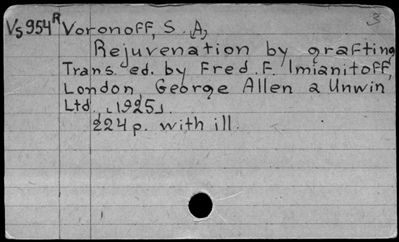 3
Vs954R Voronoff, S. A,
Rejuvenation by grafting
Trans. ed. by Fred. F. Imianitoff,
London, George Allen & Unwin
Ltd., ⌞1925⌟.
224p. with ill.